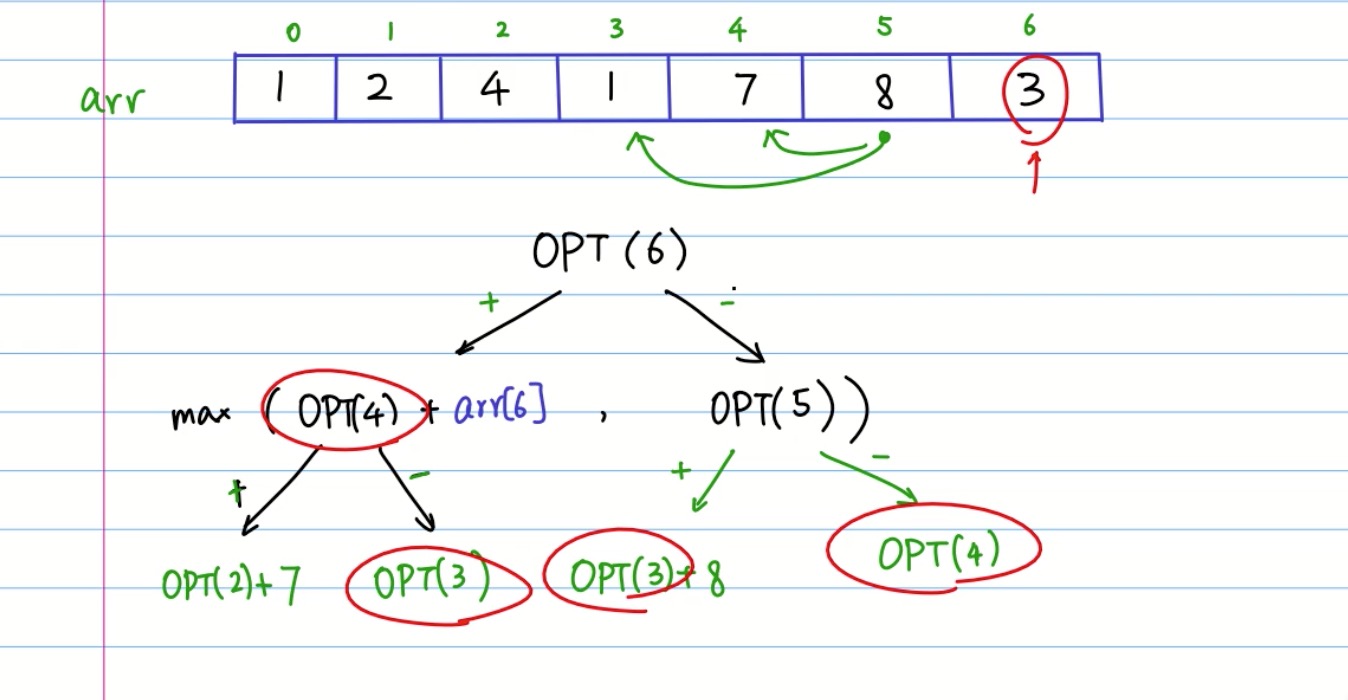 0 1 2 3 4 5 6
arr 1 2 4 1 7 8 3
OPT(6)
+ -
max (OPT(4) + arr[6] , OPT(5))
+ - + -
OPT(2)+7 OPT(3) OPT(3)+8 OPT(4)